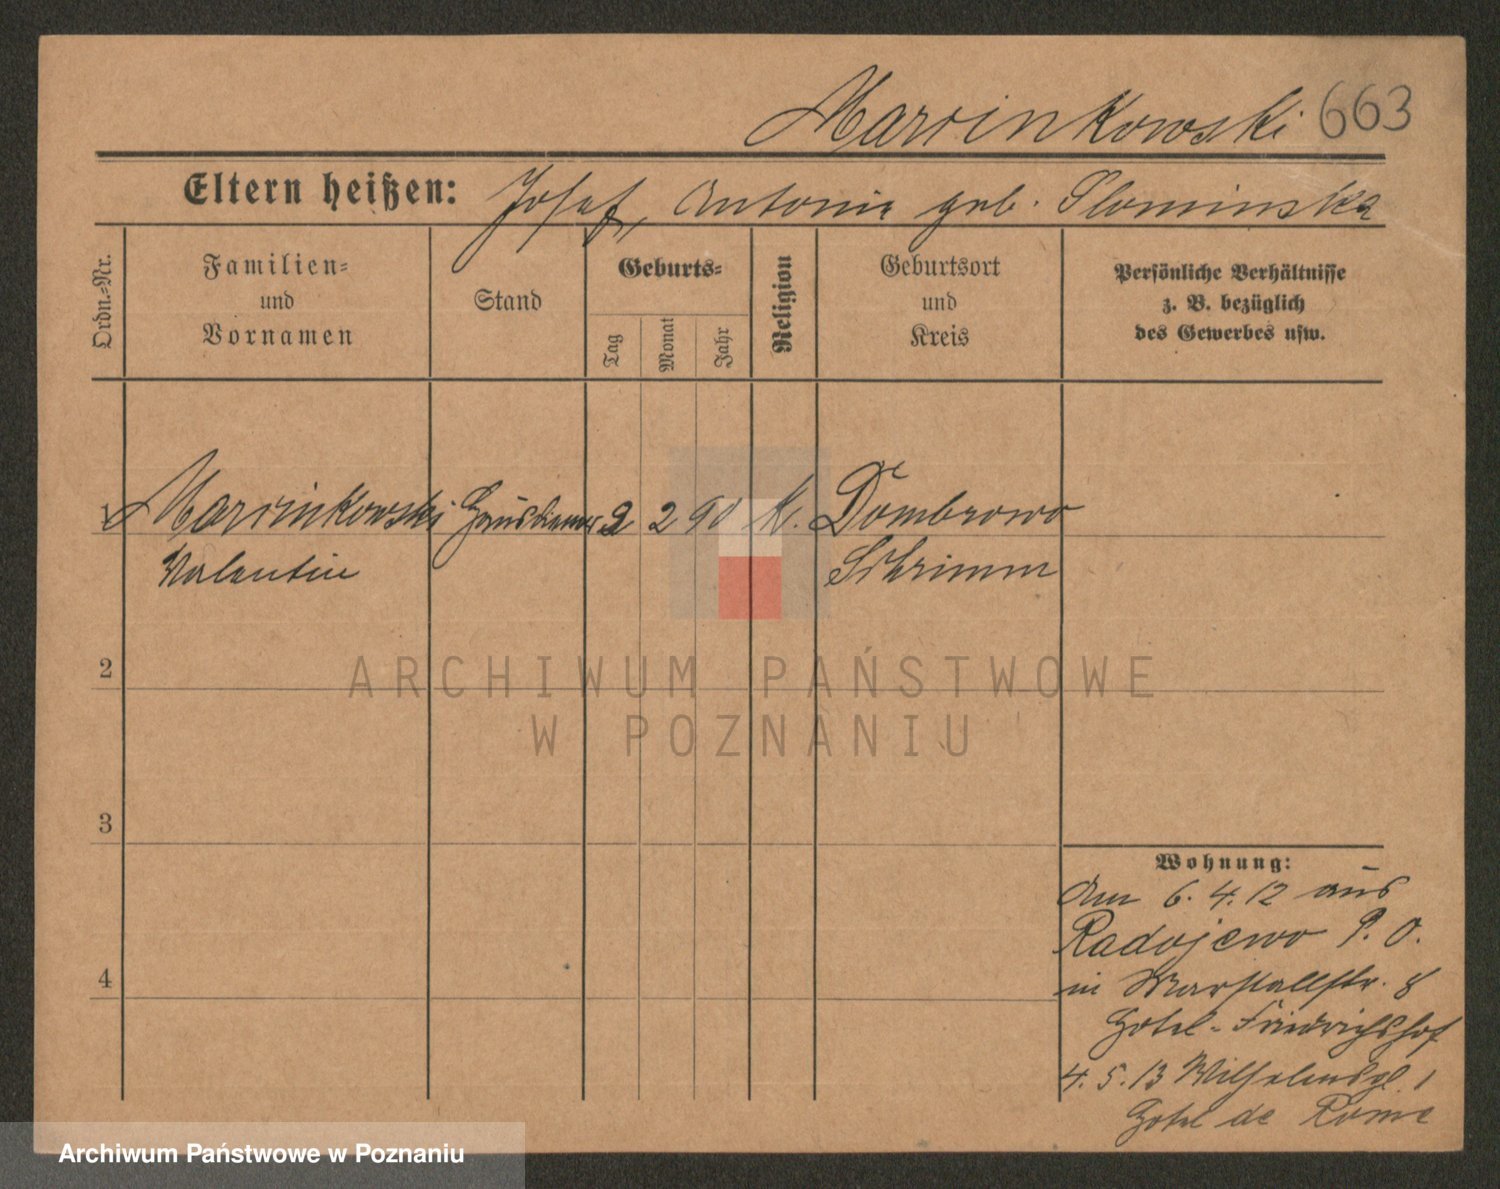 Marcinkowski 663
Eltern heißen: Josef, Antonie geb. Slominska
Ordn.-Nr.
Familien-
und
Vornamen
Stand
Geburts-
Tag
Monat
Jahr
Religion
Geburtsort
und
Kreis
Persönliche Verhältnisse
z. B. bezüglich
des Gewerbes usw.
1 Marcinkowski Hausdiener 2 2 90 k. Dombrowo
Valentin Schrimm
2
ARCHIWUM PAŃSTWOWE
W POZNANIU
3
Wohnung:
Am 6. 4. 12 aus
Radojewo P. O.
4
in Marstallstr. 8
Hotel-Friedrichshof
4. 5. 13 Wilhelmspl. 1
Hotel de Rome
Archiwum Państwowe w Poznaniu